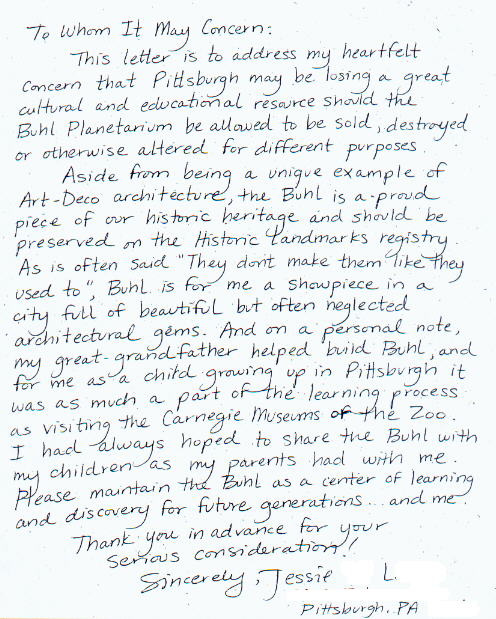 To Whom It May Concern:
This letter is to address my heartfelt
concern that Pittsburgh may be losing a great
cultural and educational resource should the
Buhl Planetarium be allowed to be sold, destroyed
or otherwise altered for different purposes.
Aside from being a unique example of
Art-Deco architecture, the Buhl is a proud
piece of our historic heritage and should be
preserved on the Historic Landmarks registry.
As is often said "They dont make them like they
used to", Buhl is for me a showpiece in a
city full of beautiful but often neglected
architectural gems. And on a personal note,
my great-grandfather helped build Buhl, and
for me as a child growing up in Pittsburgh it
was as much a part of the learning process
as visiting the Carnegie Museums or the Zoo.
I had always hoped to share the Buhl with
my children as my parents had with me.
Please maintain the Buhl as a center of learning
and discovery for future generations... and me.
Thank you in advance for your
serious consideration!
Sincerely, Jessie L.
Pittsburgh, PA